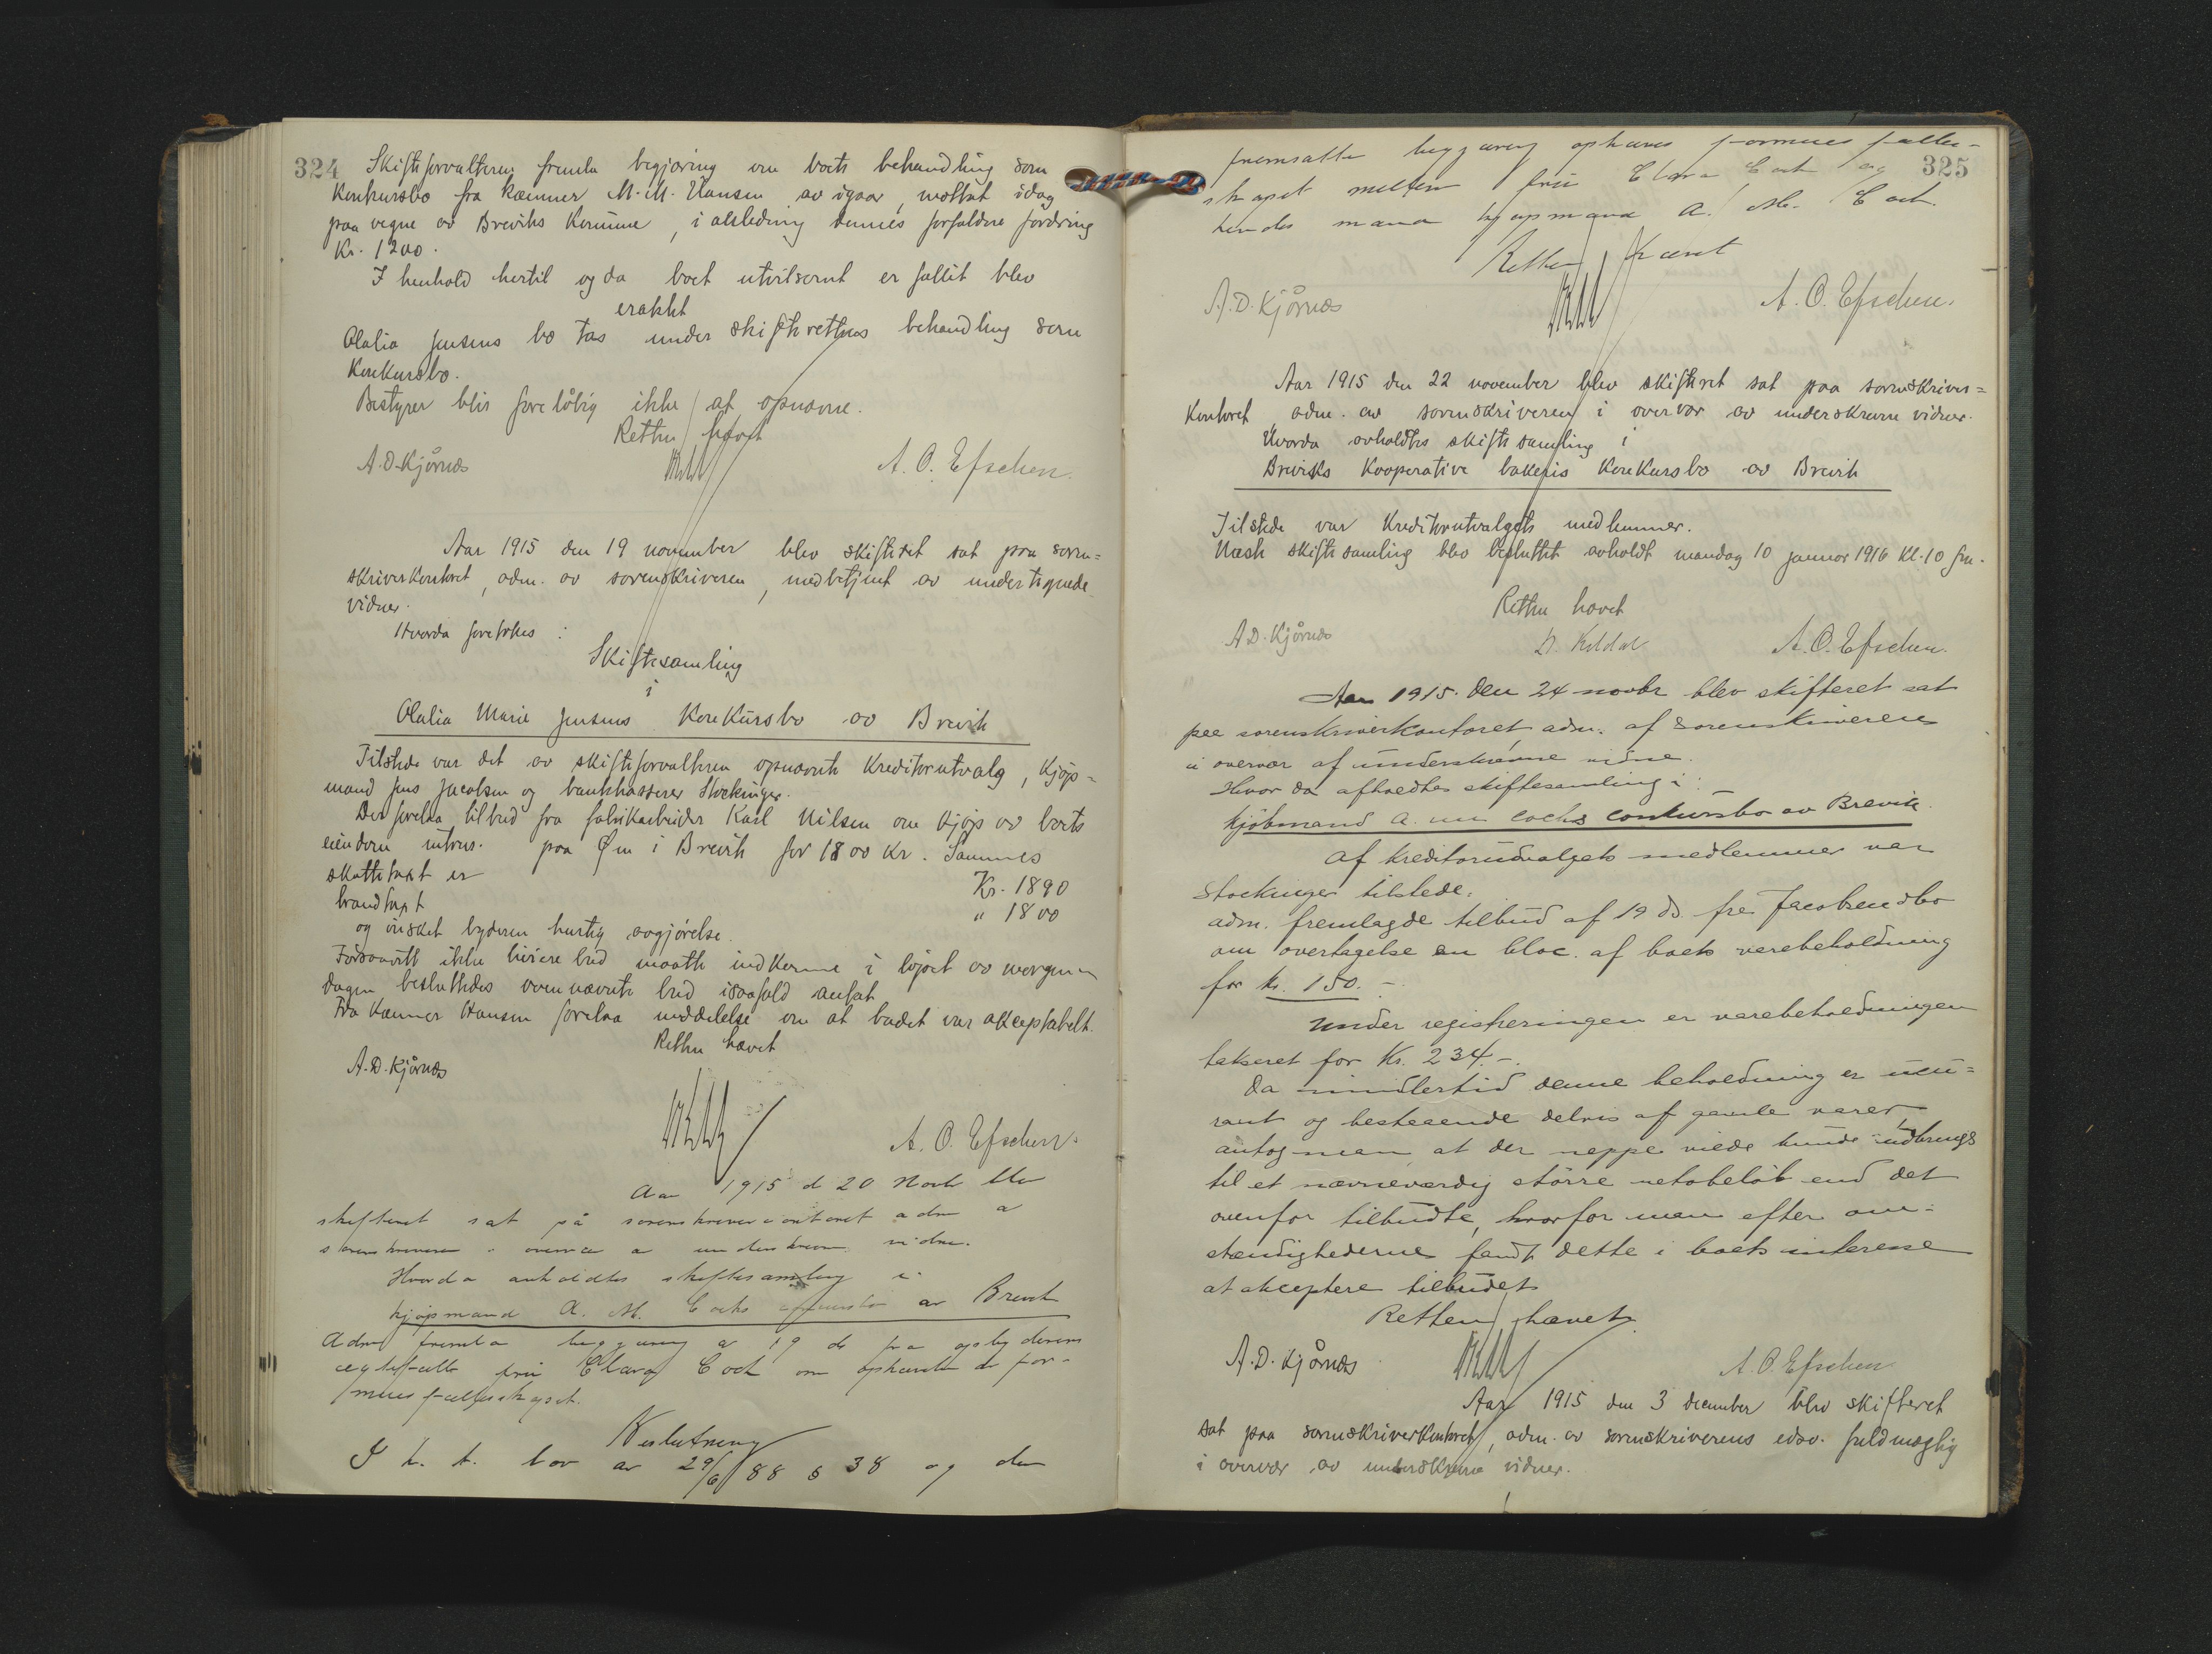 324
Skifteforvalteren fremla begjæring om boets behandling som
konkursbo fra kæmner M. M. Hansen av igaar, mottat idag
paa vegne av Breviks Kommune, i anledning dennes forfaldne fordring
Kr. 1200.
I henhold hertil og da boet utvilsomt er fallit blev
erakktet
Olalia Jensens bo tas under skifterettens behandling som
Konkursbo.
Bestyrer blir foreløbig ikke at opnævne.
Retten hævet
A. D. Kjørnæs
A. O. Efschen.
Aar 1915 den 19 november blev skifteret sat paa soren=
skriverkontoret, adm. av sorenskriveren, medbetjent av undertegnede
vidner.
Hvorda foretokes :
Skiftesamling
i
Olalia Marie Jensens Konkursbo av Brevik
Tilstede var det av skifteforvalteren opnævnte Kreditorutvalg, Kjøp=
mand Jens Jacobsen og bankkasserer Stockinger.
Der forelaa tilbud fra fabrikarbeider Karl Nilsen om kjøp av boets
eiendom paa Øen i Brevik for 1800 kr. Sammes
skattetaxt er Kr. 1890
brandtaxt " 1800
og ønsket byderen hurtig avgjørelse.
Forsaavidt ikke høiere bud maatte indkomme i løpet av morgen
dagen besluttedes ovennævnte bud isaafald antat
Fra Kæmner Hansen forelaa meddelelse om at budet var akceptabelt.
Retten hævet
A. D. Kjørnæs
A. O. Efschen.
Aar 1915 d 20 Novbr blev
skifteret sat på sorenskriverkontoret adm a
sorenskriveren i overvær a underskrevne vidner.
Hvorda avholdtes skiftesamling i
kjøpmand A. M. Cocks av Brevik
Adm fremla begjæring a 19 ds fra opbyderens
egtefælle fru Clara Cock om ophævelse de for-
muesfællesskapet.
Beslutning
I h. t. lov av 29/6 88 § 38 og den
325
fremsatte begjæring ophæves formuesfælles-
skapet mellem fru Clara Cock og
hendes mand kjøpmand A. M. Cock.
Retten hævet
A. D. Kjørnæs
A. O. Efschen.
Aar 1915 den 22 november blev skifteret sat paa sorenskriver=
kontoret, adm. av sorenskriveren i overvær av underskrevne vidner.
Hvorda avholdtes skiftesamling i
Breviks Kooperative bakeris Konkursbo av Brevik
Tilstede var Kreditorutvalgets medlemmer.
Næste skiftesamling blev besluttet avholdt mandag 10 januar 1916 kl. 10 fm.
Retten hævet
A. D. Kjørnæs
A. O. Efschen.
Aar 1915. den 24 novbr blev skifteret sat
paa sorenskriverkontoret adm. af sorenskriveren
i overvær af underskrevne vidne.
Hvor da afholdtes skiftesamling i :
Kjøbmand A. M. Cocks Conkursbo av Brevik.
Af kreditorudvalgets medlemmer var
Stockinger tilstede.
adm. fremlagde tilbud af 19 ds. fra Jacobsen & Co
om overtagelse en bloc. af boets varebeholdning
for kr. 150.-
Under registreringen er varebeholdningen
takseret for Kr. 234.-
Da imidlertid denne beholdning er ucu=
rant og bestaaende delvis af gamle varer,
antog man at der neppe vilde kunde indbringes
til et nævneværdig større netobeløb end det
ovenfor tilbudte, hvorfor man efter om=
stændighederne fandt dette i boets interesse
at akceptere tilbudet
Retten hævet
A. D. Kjørnæs
A. O. Efschen
Aar 1915 den 3 december blev skifteret
sat paa sorenskriverkontoret, adm. av sorenskriverens edsv. fuldmægtig
i overvær av underskrevne vidner.